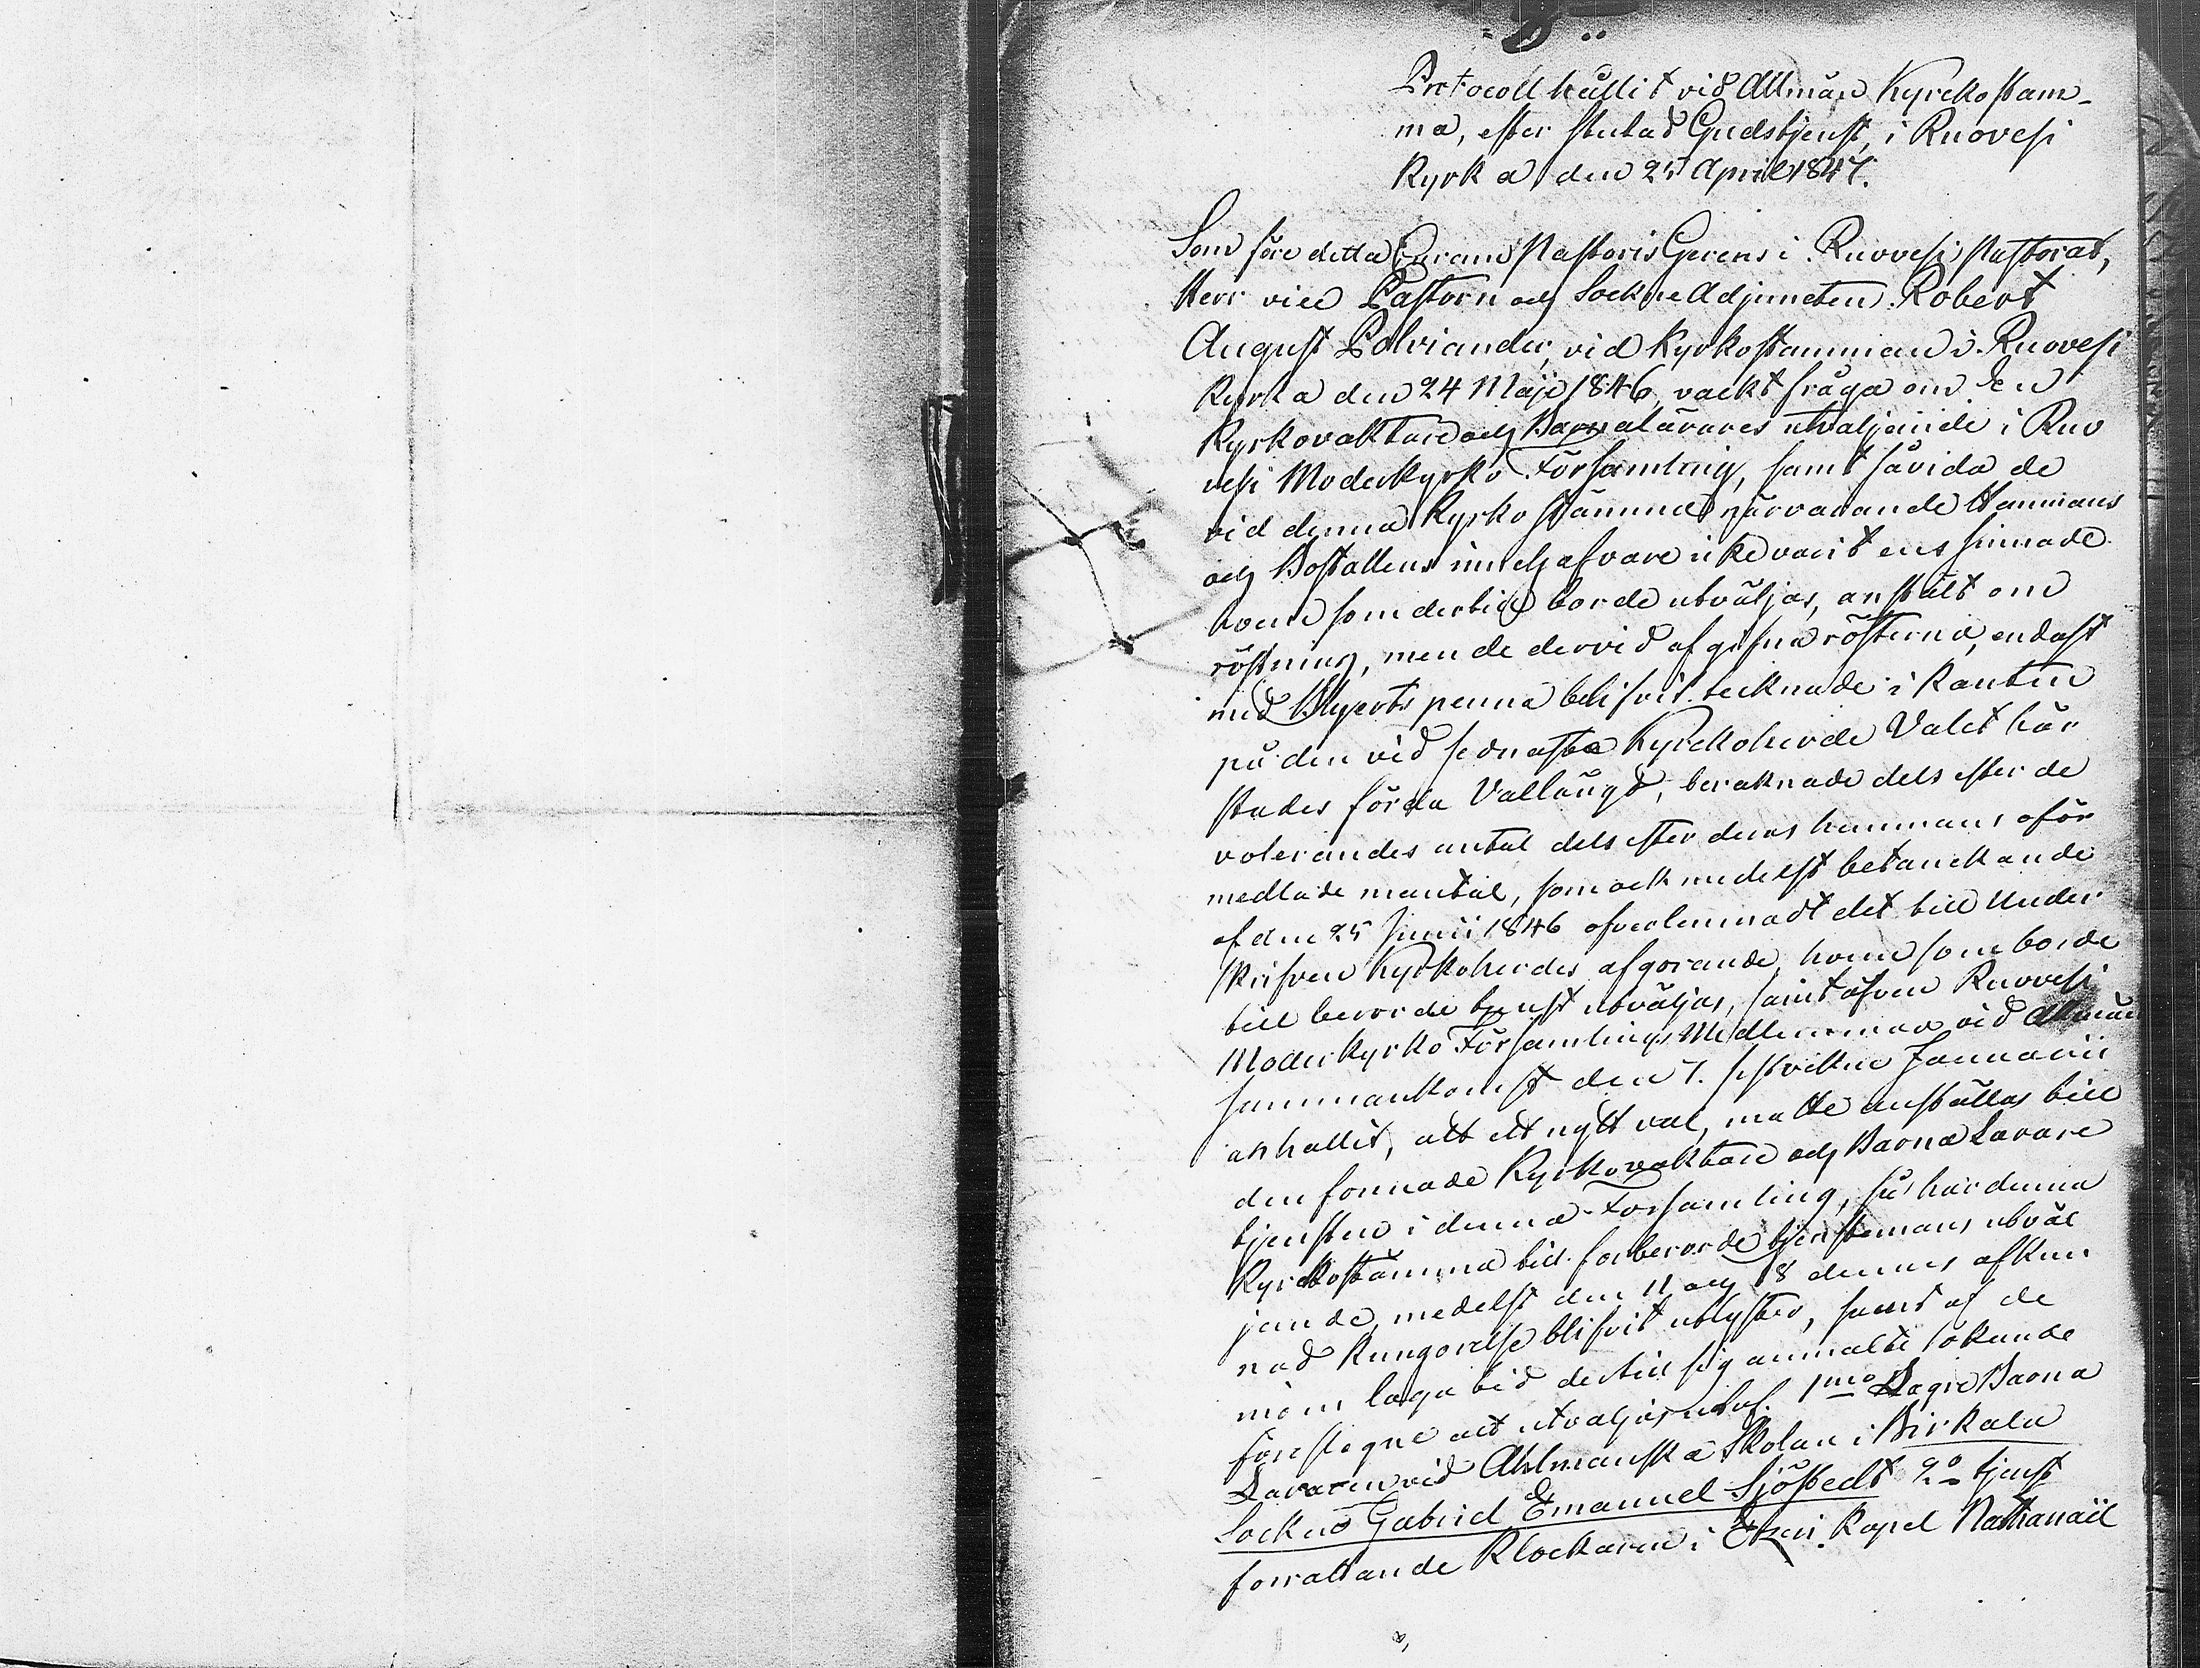 Protocoll hållit vid Allmän Kyrckostam-
ma, efter slutad Gudstjenst, i Ruovesi
Kyrka den 25 April 1847.
Som före detta Curam Pastoris Gerens i Ruovesi Pastorat,
Herr vice Pastorn och SockneAdjuncten Robert
August Polviander, vid Kyrkostämman i Ruovesi
Kyrka den 24 Maji 1846, väckt fråga om den
Kyrkovaktare och Barnalärares utväljande i Ruo
vesi Moderkyrko Församling, samt såvida de
vid denna Kyrkostämma närvarande Hemmans
och Boställens innehafvare icke varit ens sinnade
hvem som dertill borde utväljas, anstält om
röstning, men de dervid afgifna rösterna, endast
med Blyerts penna blifvit tecknade i kanten
på den vid sednaste Kyrckoherde Valet här
städes förda Vallängd, beräknade dels efter de
voterandes antal dels efter deras hemmans oför
medlade mantal, som ock medelst betänckande
af den 25 Junii 1846 öfverlemnadt det till Under
skrifven Kyrkoherdes afgörande, hvem som borde
till berörde tjenst utväljas, samt äfven Ruovesi
Moderkyrko Församlings Medlemmar vid Allmän
sammankomst den 7. sistvikne Januarii
anhållit, att ett nytt val, måtte anställas till
den förenade Kyrkovaktare och Barna Lärare
tjensten i denna Församling, så har denna
Kyrckostämma till förberörde tjenstemans utväl
jande, medelst den 11 och 18 dennes afkun
nad Kungörelse blifvit utlyster, samt af de
inom laga tid dertill sig anmälte sökande
föreslagne att utväljas utaf. 1mo Lägre Barna
Läraren vid Ahlmanska Skolan i Birkala
Sockn Gabriel Emanuel Sjöstedt 2o tjenst
förrättande Klockaren i Kapel Nathanaël